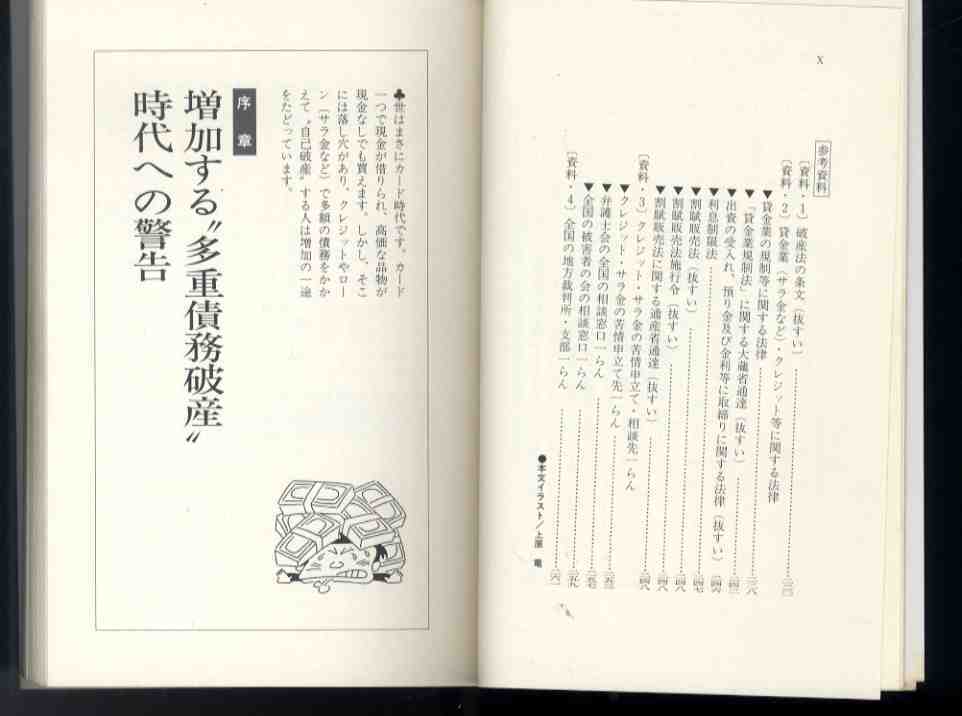 X
参考資料
〔資料・1〕破産法の条文（抜すい）
〔資料・2〕貸金業（サラ金など）・クレジット等に関する法律
▼貸金業の規制等に関する法律
▼「貸金業規制法」に関する大蔵省通達（抜すい）
▼出資の受入れ、預り金及び金利等に取締りに関する法律（抜すい）
▼利息制限法
▼割賦販売法（抜すい）
▼割賦販売法施行令（抜すい）
▼割賦販売法に関する通産省通達（抜すい）
〔資料・3〕クレジット・サラ金の苦情申立て・相談先一らん
▼クレジット・サラ金の苦情申立て先一らん
▼弁護士会の全国の相談窓口一らん
▼全国の被害者の会の相談窓口一らん
〔資料・4〕全国の地方裁判所・支部一らん
●本文イラスト／上原 竜
♣世はまさにカード時代です。カード
一つで現金が借りられ、高価な品物が
現金なしでも買えます。しかし、そこ
には落し穴があり、クレジットやロー
ン（サラ金など）で多額の債務をかか
えて〝自己破産〟する人は増加の一途
をたどっています。
序章
増加する〝多重債務破産〟
時代への警告